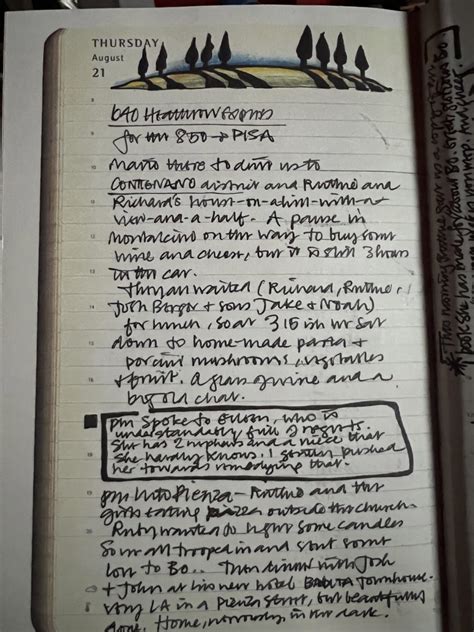 THURSDAY
August
21
640 Heathrow Express
for the 850 → PISA
Mario there to drive us to
CONTIGNANO district and Ruthie and
Richard's house-on-a-hill-with-a
view-and-a-half. A pause in
Montalcino on the way to buy some
wine and cheese, but it is still 3 hours
in the car.
They all waited (Richard, Ruthie,
Josh Berger + sons Jake + Noah)
for lunch, so at 315 ish we sat
down to home-made pasta +
porcini mushrooms, vegetables
+ fruit. A glass of wine and a
big old chat.
pm Spoke to Eileen, who is
understandably full of regrets.
She has 2 nephews and a niece that
she hardly knows. I gently pushed
her towards remedying that.
pm Into Pienza - Ruthie and the
girls eating pizza outside the church.
Ruby wanted to light some candles
So we all trooped in and sent some
love to Bo.. Then dinner with Josh
+ John at his new hotel Townhouse.
very LA in a Pienza street, but beautifully
done. Home, nervously in the dark.